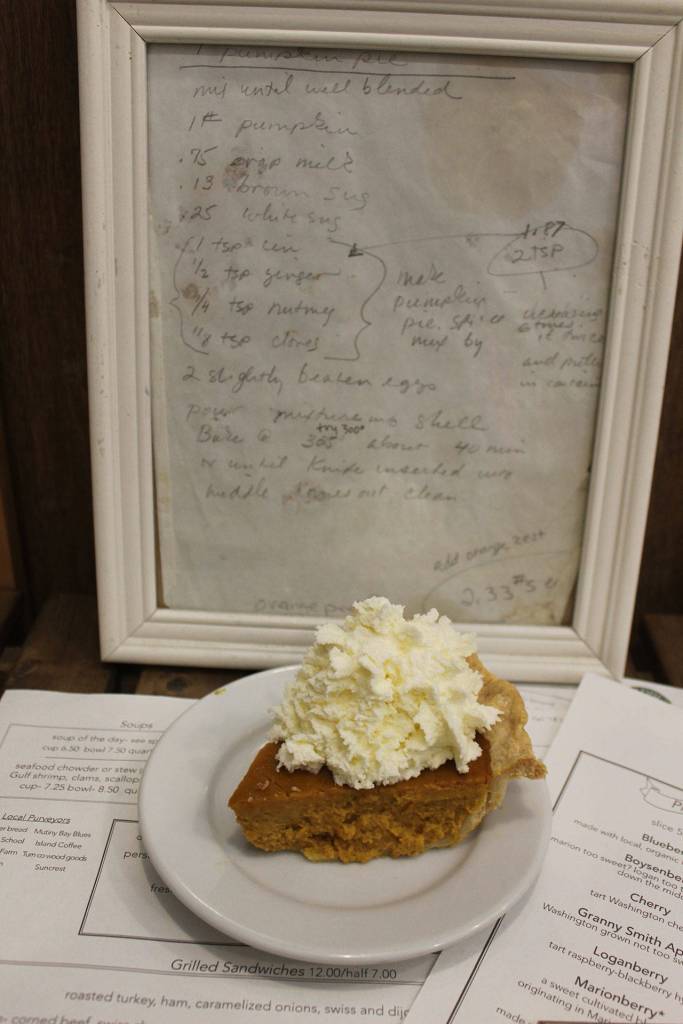 1 pumpkin pie
mix until well blended
1# pumpkin
.75 evap milk
.13 brown sug
.25 white sug
1 tsp cin
1/2 tsp ginger
1/4 tsp nutmeg
1/8 tsp cloves
1.87
2 TSP
make
pumpkin
pie spice
mix by
increasing
it twice
and put
in
2 slightly beaten eggs
pour mixture into shell
try 300°
Bake @ 365 about 40 min
or until Knife inserted into
middle comes out clean
add orange zest
2.33 #s
Soups
soup of the day- see
cup 6.50 bowl 7.50 quar
seafood chowder or stew
Gulf shrimp, clams, scallop
cup- 7.25 bowl- 8.50 qu
Local Purveyors
bread Mutiny Bay Blues
School Island Coffee
Farm Tumcowoodgoods
Suncrest
pers
fres
Grilled Sandwiches 12.00/half 7.00
roasted turkey, ham, caramelized onions, swiss and dij
corned beef, swiss
slice 5
Blueber
made with local, organic
Boysenbe
marion too sweet? logan too
down the mid
Cherry
tart Washington che
Granny Smith Ap
Washington grown not too sw
Loganberry
tart raspberry-blackberry hy
Marionberry*
a sweet cultivated bl
originating in Mario
made